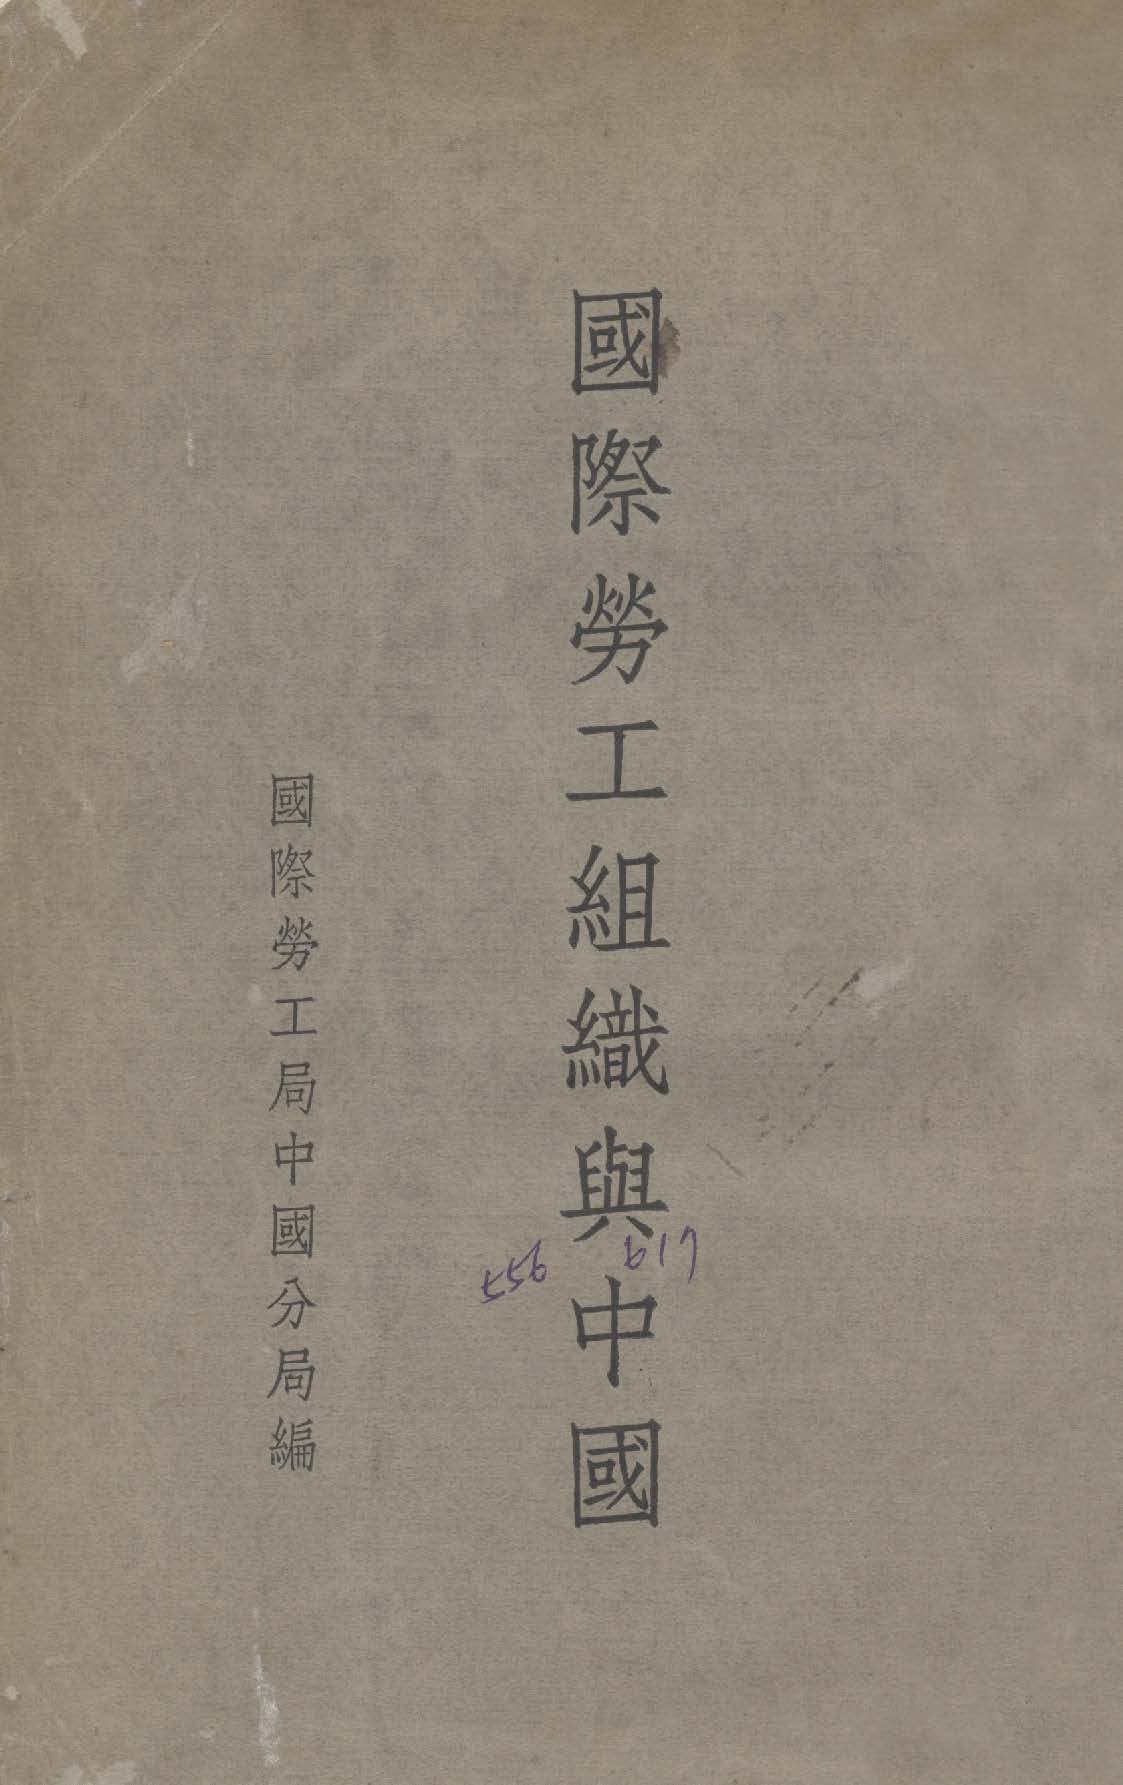 國際勞工組織與中國
國際勞工局中國分局編
556
617